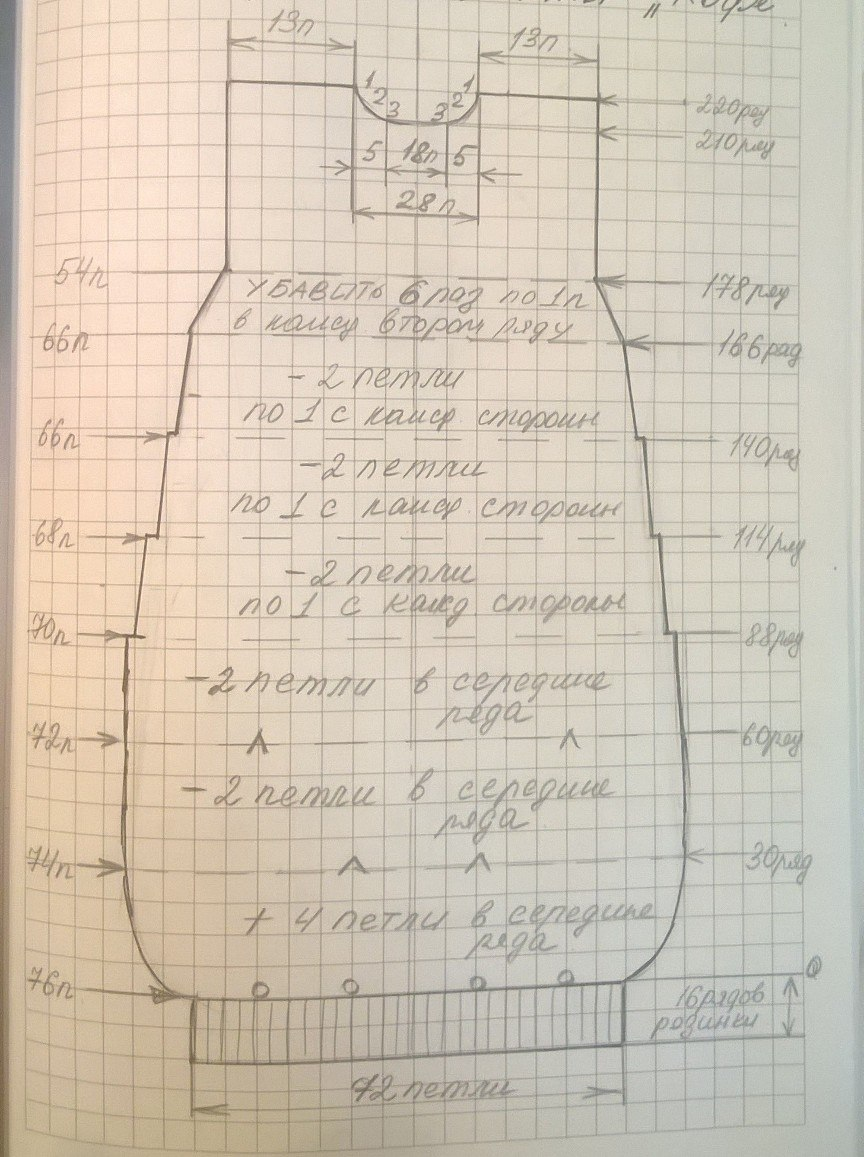 „Кофе
13п
13п
1 2 3
3 2 1
220 ряд
210 ряд
5 18п 5
28п
54п
УБАВИТЬ 6 раз по 1п
178 ряд
в кажд втором ряду
66п
166 ряд
- 2 петли
по 1 с кажд. стороны
66п
140 ряд
- 2 петли
по 1 с кажд. стороны
68п
114 ряд
- 2 петли
по 1 с кажд стороны
70п
88 ряд
- 2 петли в середине
ряда
72п
60 ряд
- 2 петли в середине
ряда
74п
30 ряд
+ 4 петли в середине
ряда
76п
0
16 рядов
резинки
72 петли